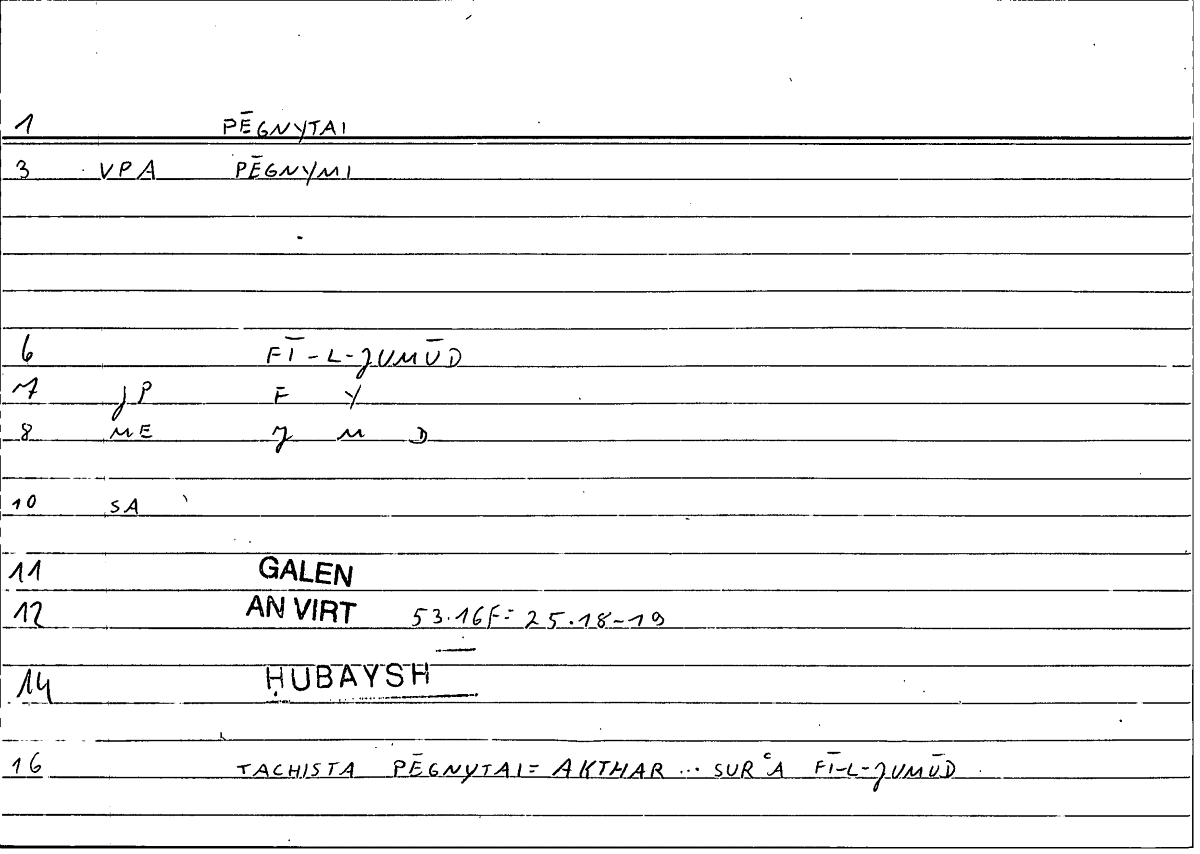 1 PĒGNYTAI
3 VPA PĒGNYMI
6 FĪ-L-JUMŪD
7 JP F Y
8 ME J M D
10 SA
11 GALEN
12 AN VIRT 53.16F= 25.18-19
14 ḤUBAYSH
16 TACHISTA PĒGNYTAI= AKTHAR ... SURᶜA FĪ-L-JUMŪD